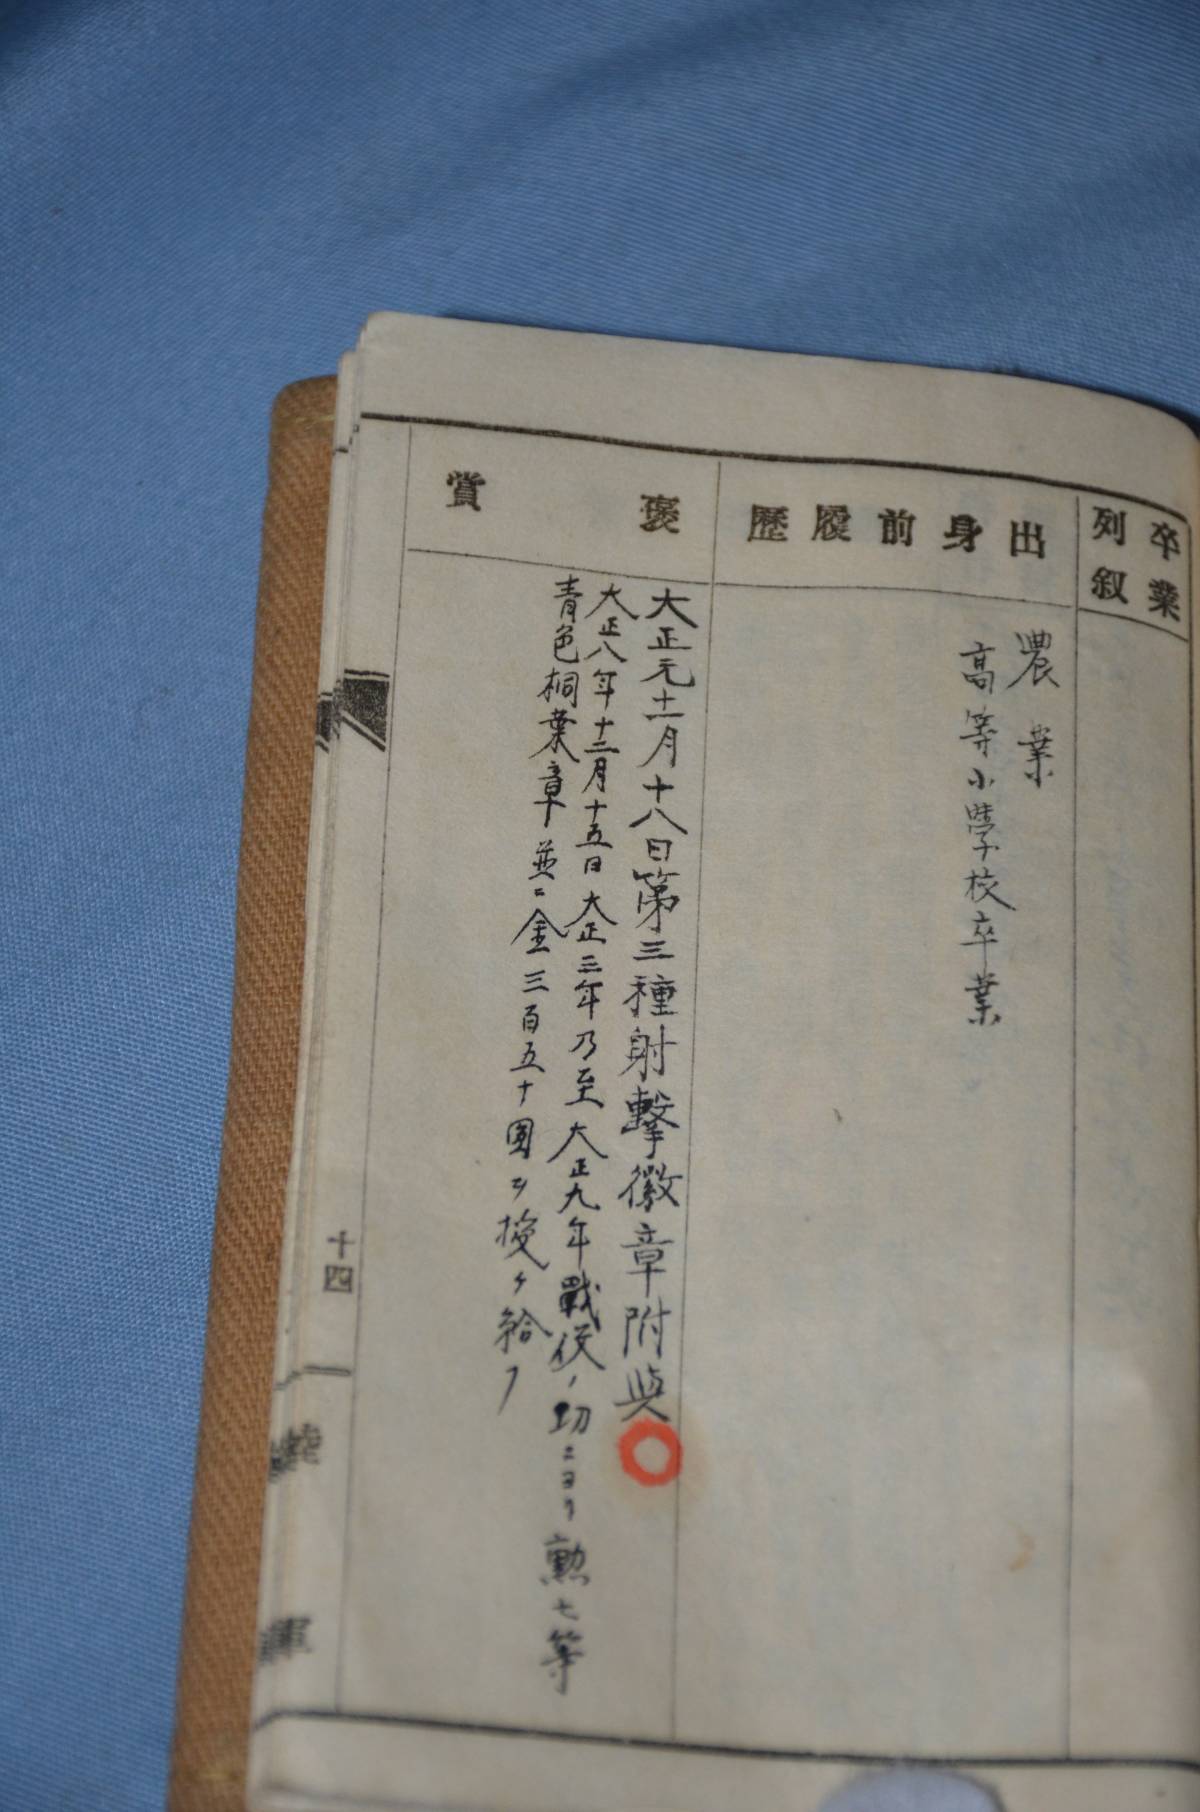 卒業
列叙
出身前履歴
農業
高等小學校卒業
褒賞
大正元十二月十八日第三種射撃徽章附與
大正八年十二月十五日大正三年乃至大正九年戰役ノ功ニヨリ勲七等
青色桐葉章並ニ金三百五十圓ヲ授ケ給フ
十四
陸軍